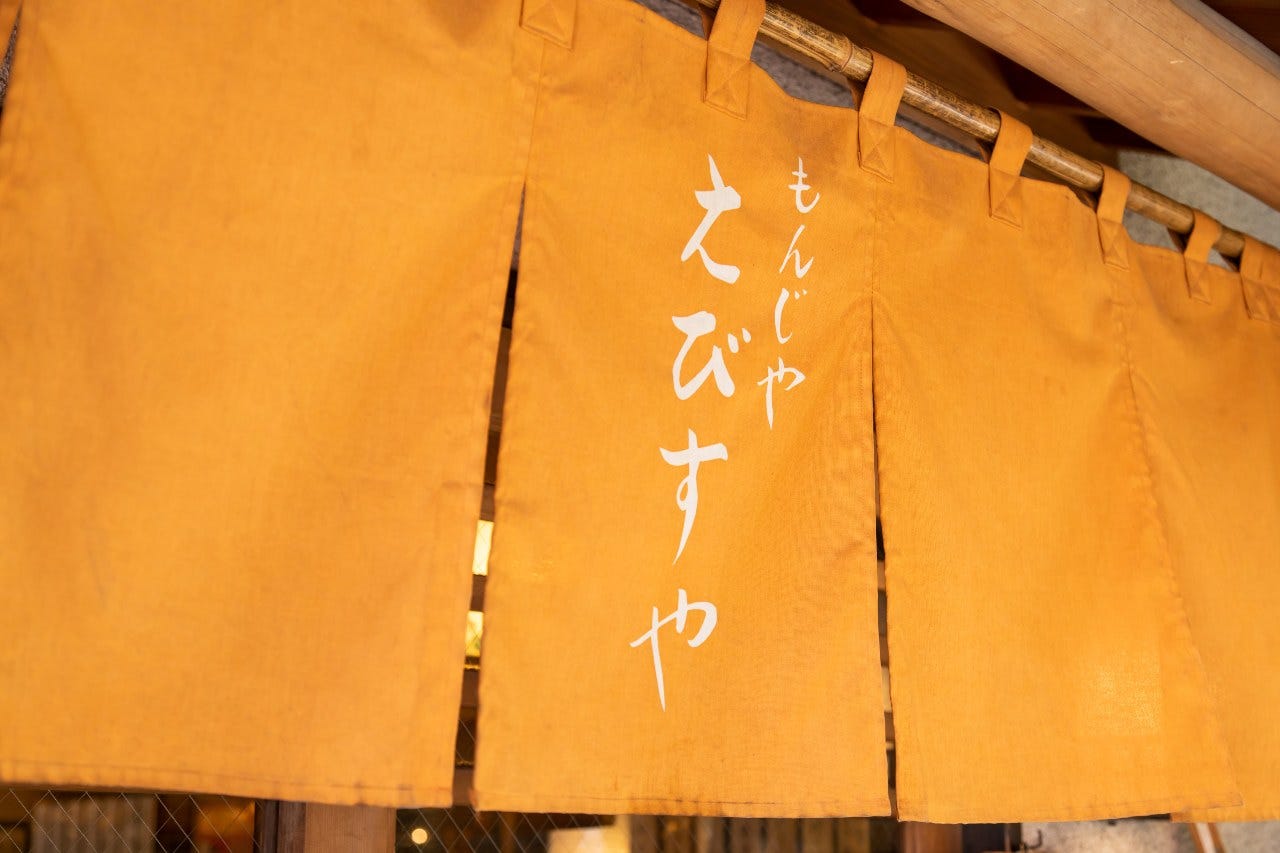 もんじや
えびすや